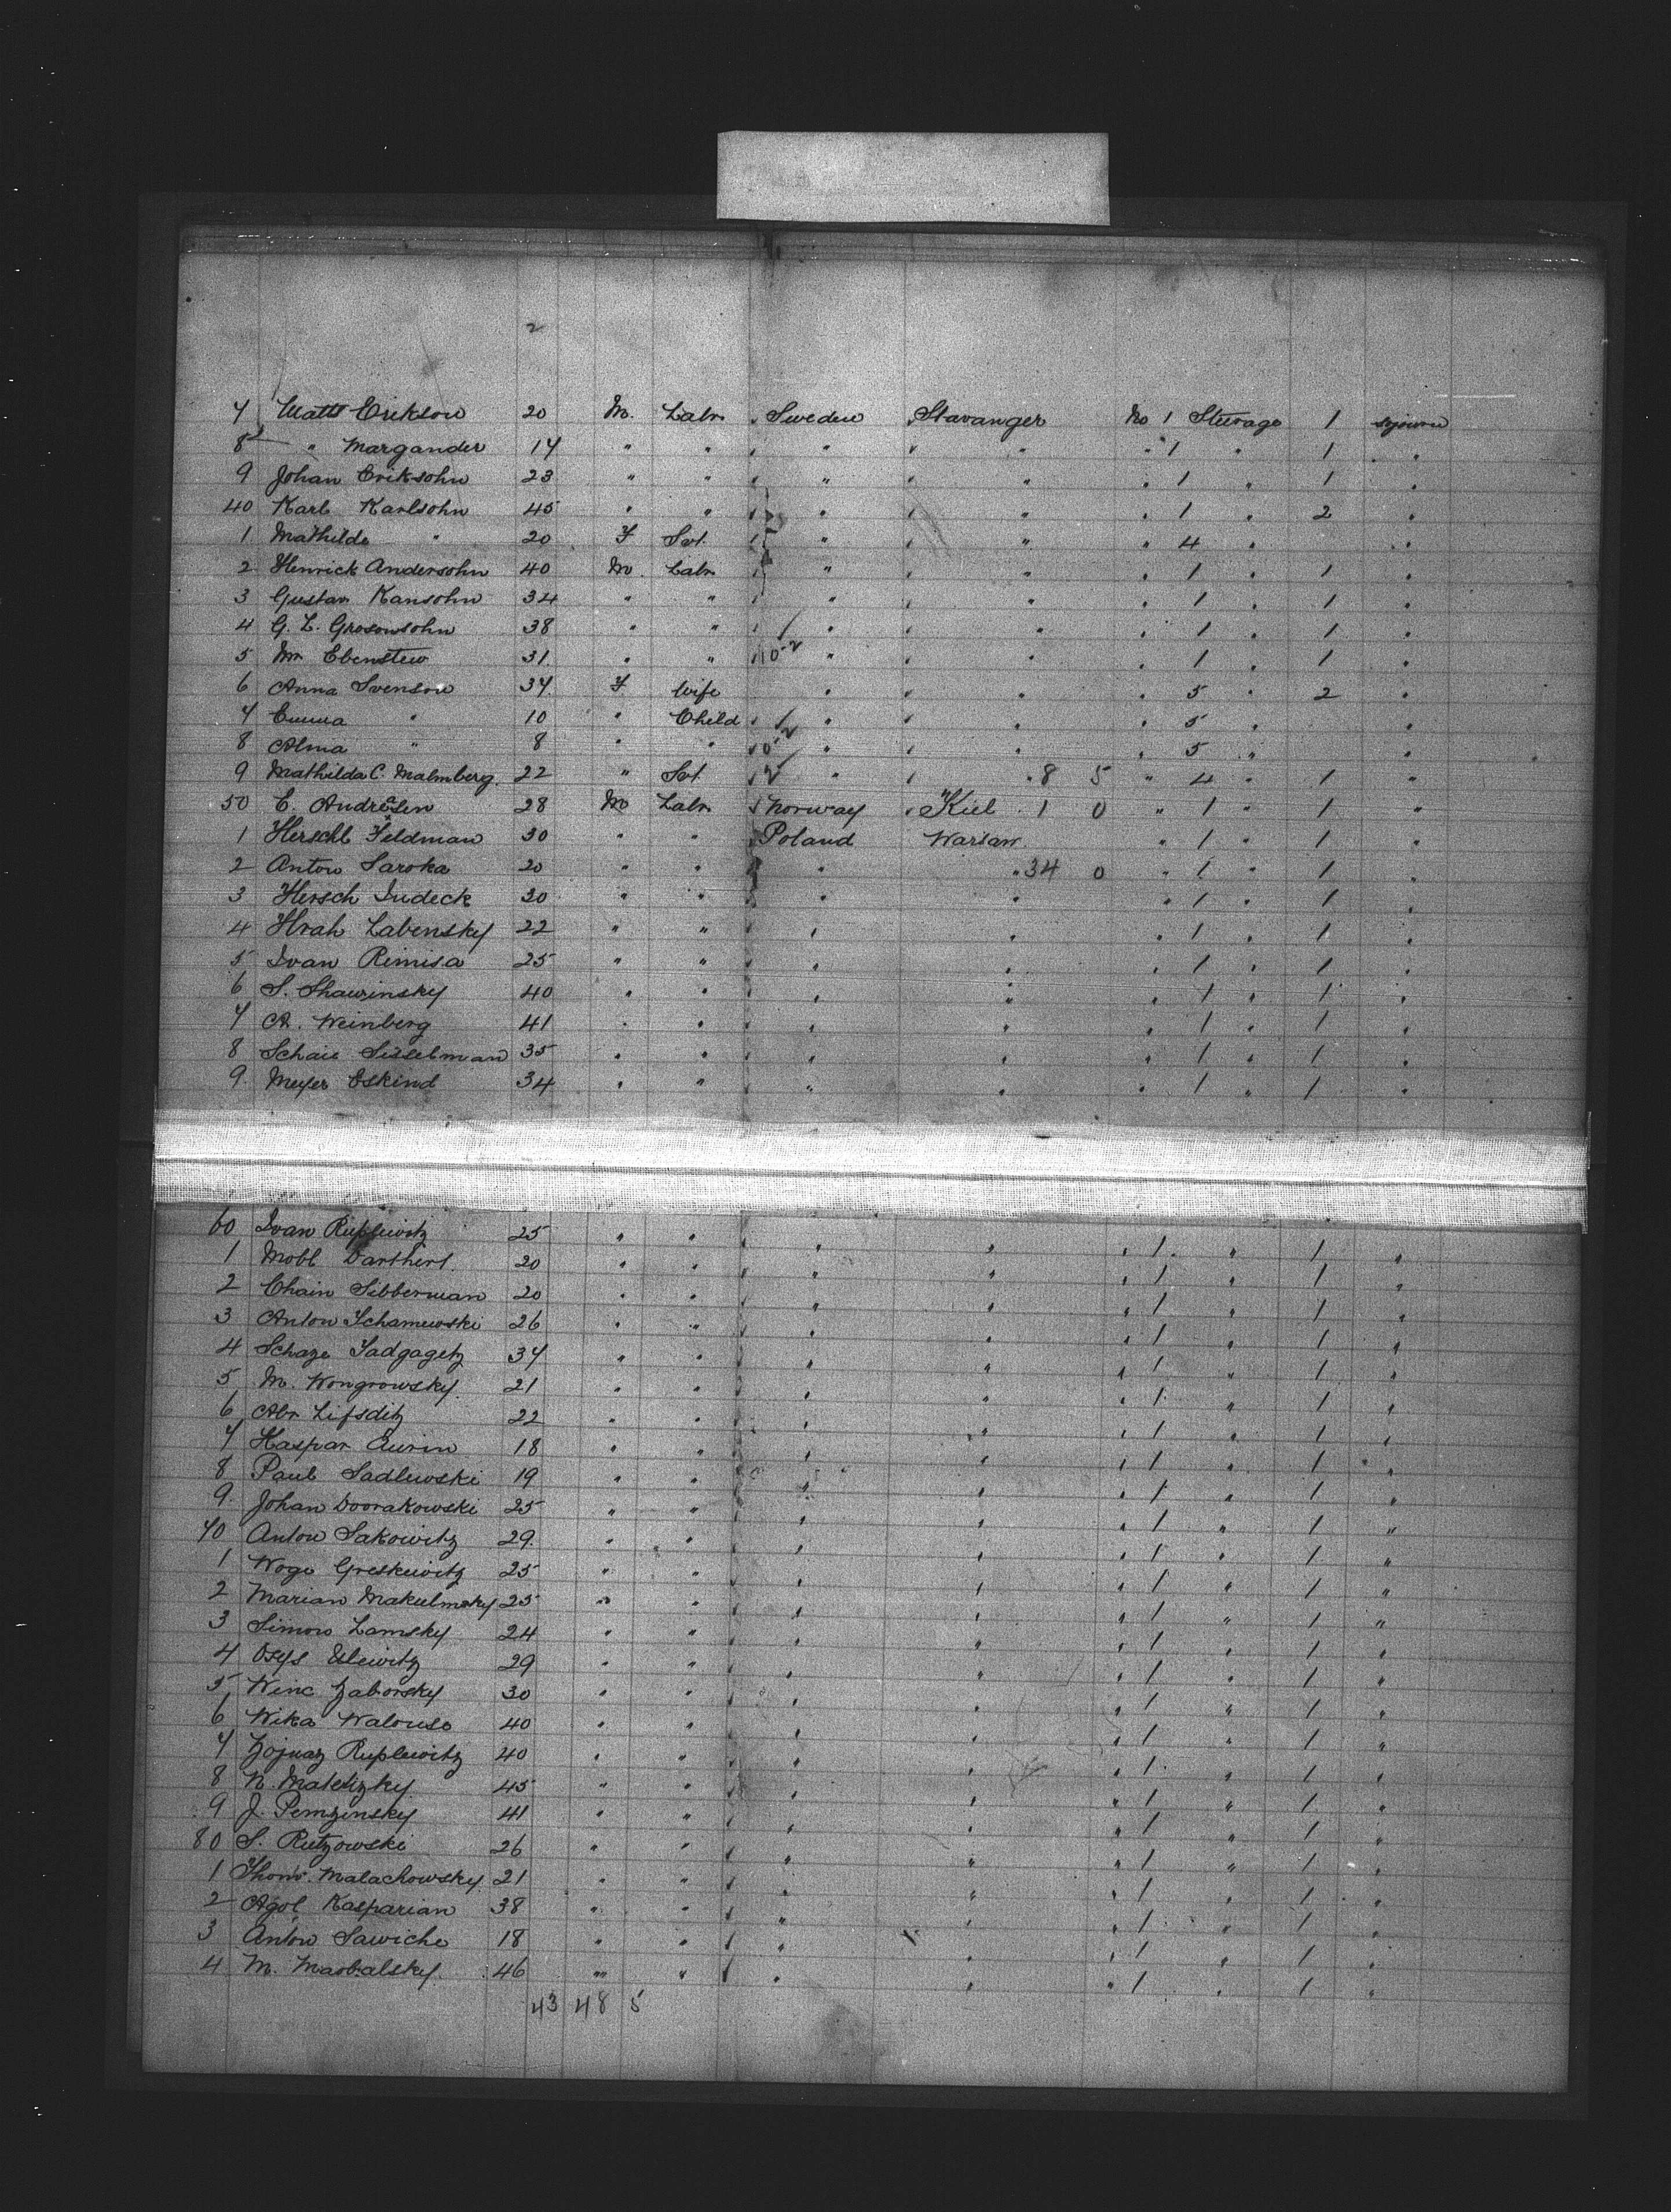 2
7 Matts Erikson 20 M. Labr. Sweden Stavanger No 1 Steerage 1 sojourn
8 " Margander 14 " " " " " 1 " 1 "
9 Johan Eriksohn 23 " " " " " 1 " 1 "
40 Karl Karlsohn 45 " " " " " 1 " 2 "
1 Mathilde " 20 F Svt. " " " 4 " "
2 Henrick Andersohn 40 M. Labr. " " " 1 " 1 "
3 Gustav Kansohn 34 " " " " " 1 " 1 "
4 G. L. Grosonsohn 38 " " " " " 1 " 1 "
5 Mr. Ebenstew 31 " " 10-2 " " " 1 " 1 "
6 Anna Svenson 34 F Wife " " " 5 " 2 "
7 Emma " 10 " Child " " " 5 " "
8 Alma " 8 " " " " " 5 " "
9 Mathilda C. Malmberg 22 " Svt. " " 8 5 " 4 " 1 "
50 E. Andresen 28 M Labr. Norway Kiel 1 0 " 1 " 1 "
1 Herschl Feldman 30 " " Poland Warsaw " 1 " 1 "
2 Anton Saroka 20 " " " " 34 0 " 1 " 1 "
3 Hersch Judeck 20 " " " " " 1 " 1 "
4 Hrah Labensky 22 " " " " " 1 " 1 "
5 Ivan Rimisa 25 " " " " " 1 " 1 "
6 S. Shawinsky 40 " " " " " 1 " 1 "
7 A. Weinberg 41 " " " " " 1 " 1 "
8 Schaie Sisselman 35 " " " " " 1 " 1 "
9 Meyer Eskind 34 " " " " " 1 " 1 "
60 Ivan Ruplewitz 25 " " " " " 1 " 1 "
1 Mobl Darthert 20 " " " " " 1 " 1 "
2 Chain Silberman 20 " " " " " 1 " 1 "
3 Anton Schamewski 26 " " " " " 1 " 1 "
4 Schaze Sadgagetz 34 " " " " " 1 " 1 "
5 M. Wongrowsky 21 " " " " " 1 " 1 "
6 Abr Lifsditz 22 " " " " " 1 " 1 "
7 Kaspar Eurin 18 " " " " " 1 " 1 "
8 Paul Sadlewski 19 " " " " " 1 " 1 "
9 Johan Dvorakowski 25 " " " " " 1 " 1 "
70 Anton Sakowitz 29 " " " " " 1 " 1 "
1 Woge Greskewitz 25 " " " " " 1 " 1 "
2 Marian Makulmsky 25 " " " " " 1 " 1 "
3 Simon Lamsky 24 " " " " " 1 " 1 "
4 Osys Ulewitz 29 " " " " " 1 " 1 "
5 Winc Zaborsky 30 " " " " " 1 " 1 "
6 Wika Walouse 40 " " " " " 1 " 1 "
7 Zojuaz Ruplewitz 40 " " " " " 1 " 1 "
8 N. Matelizky 45 " " " " " 1 " 1 "
9 J. Pemzinsky 41 " " " " " 1 " 1 "
80 S. Rutzowski 26 " " " " " 1 " 1 "
1 Thom. Malachowsky 21 " " " " " 1 " 1 "
2 Agol Kasparian 38 " " " " " 1 " 1 "
3 Anton Sawiche 18 " " " " " 1 " 1 "
4 M. Masbalsky 46 " " " " " 1 " 1 "
43 48 5